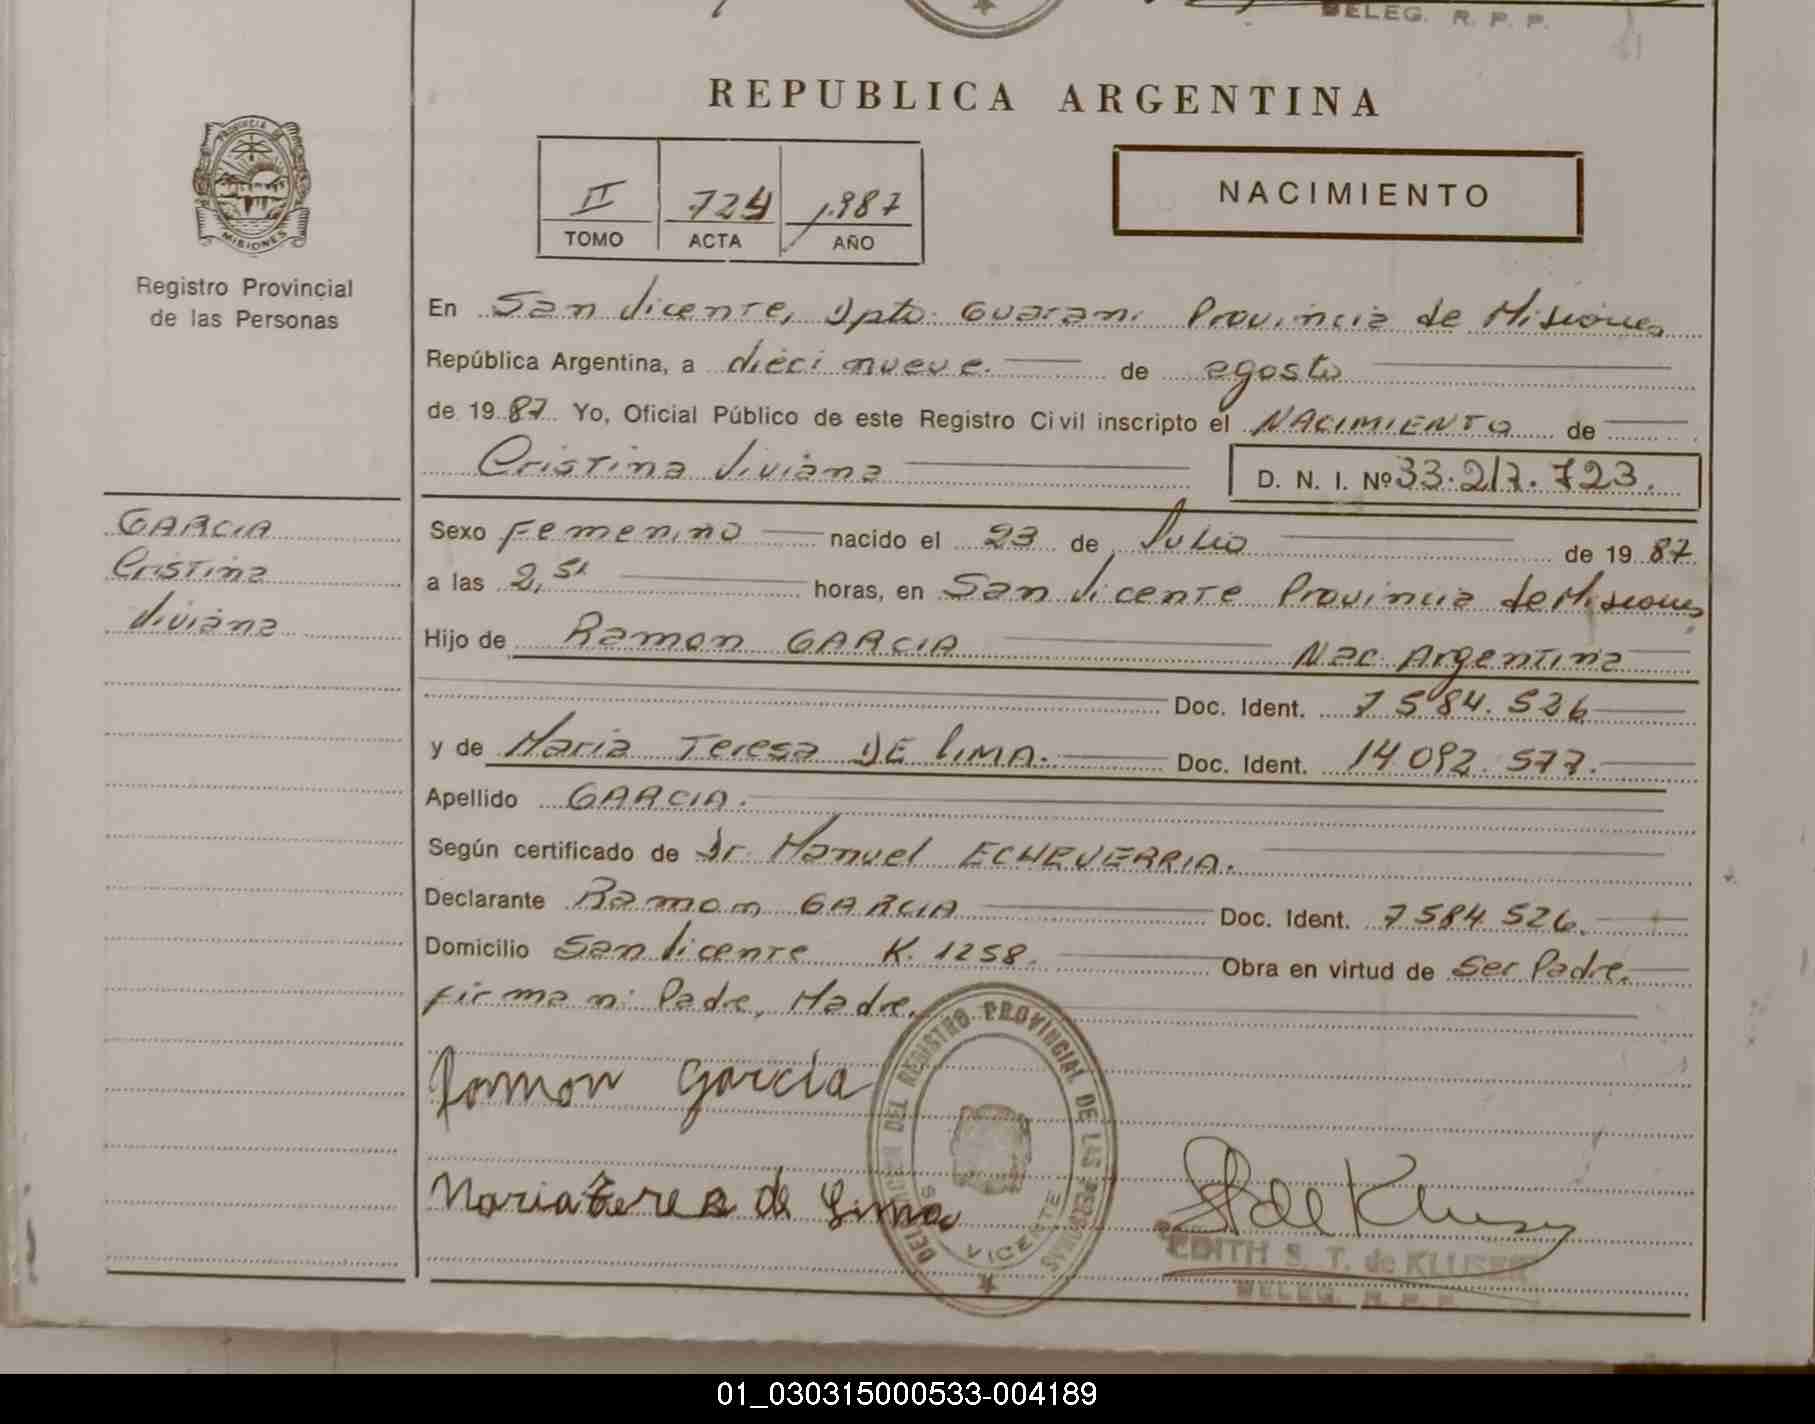 DELEG. R. P. P.
REPUBLICA ARGENTINA
PROVINCIA DE
MISIONES
II 724 1.987
TOMO ACTA AÑO
NACIMIENTO
Registro Provincial
de las Personas
En San Vicente, Dpto. Guarani Provincia de Misiones
República Argentina, a diecinueve. de agosto
de 19 87 Yo, Oficial Público de este Registro Civil inscripto el NACIMIENTO de
Cristina Viviana
D. N. I. Nº 33.217.723.
GARCIA
Cristina
Viviana
Sexo Femenino nacido el 23 de Julio de 19 87
a las 2, horas, en San Vicente Provincia de Misiones
Hijo de Ramon GARCIA Nac. Argentina
Doc. Ident. 7584.526
y de Maria Teresa DE LIMA. Doc. Ident. 14092.577.
Apellido GARCIA.
Según certificado de Dr. Manuel ECHEVERRIA.
Declarante Ramon GARCIA Doc. Ident. 7584.526.
Domicilio San Vicente K. 1258. Obra en virtud de Ser Padre.
firman: Padre, Madre.
Ramon Garcia
Maria teresa de Lima
REGISTRO PROVINCIAL DE LAS PERSONAS
S. VICENTE
EDITH S. T. de KLUSER
DELEG. R. P. P.
01_030315000533-004189